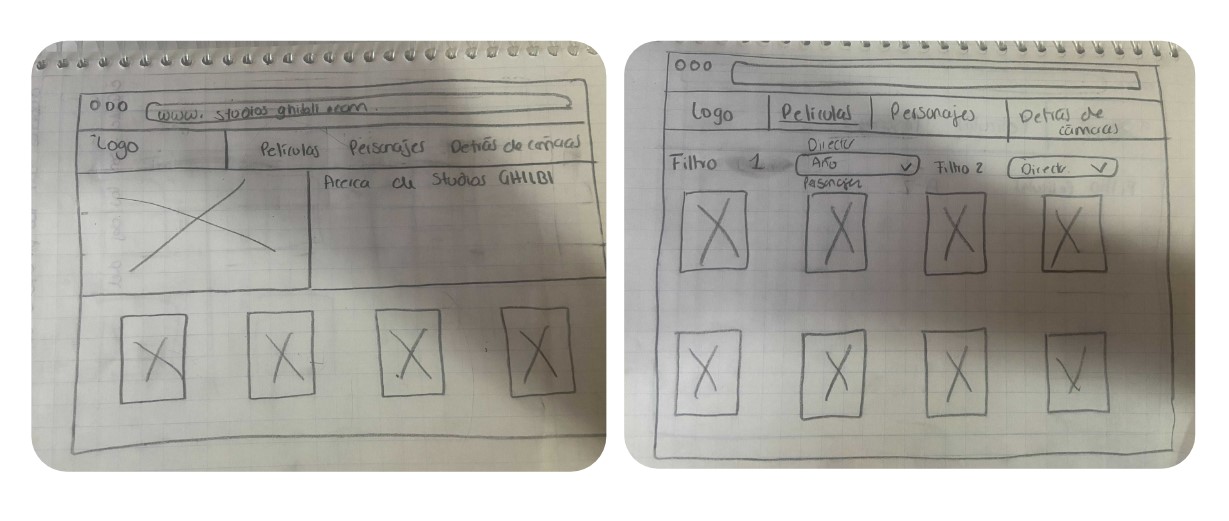 www. studios ghibli .com.
Logo
Peliculas Personajes Detrás de camaras
Acerca de Studios GHILBI
Logo Peliculas Personajes Detrás de
cámaras
Director
Filtro 1 Año Filtro 2 Direct.
Personajes